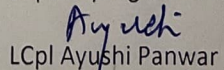 Ayushi
LCpl Ayushi Panwar